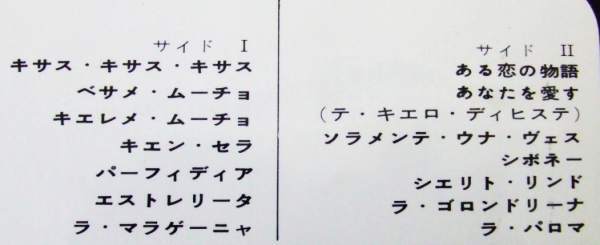 サイド I
キサス・キサス・キサス
ベサメ・ムーチョ
キエレメ・ムーチョ
キエン・セラ
パーフィディア
エストレリータ
ラ・マラゲーニャ
サイド II
ある恋の物語
あなたを愛す
(テ・キエロ・ディヒステ)
ソラメンテ・ウナ・ヴェス
シボネー
シエリト・リンド
ラ・ゴロンドリーナ
ラ・パロマ